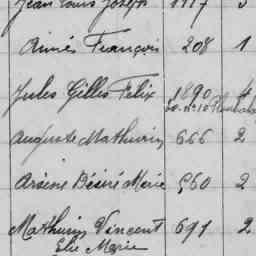 Jean Louis Joseph 1117 3
Aimé François 208 1
Jules Gilles Felix 1890 4
Auguste Mathurin 666 2
Arsène Désiré Marie 560 2
Mathurin Vincent 691 2
Elie Marie